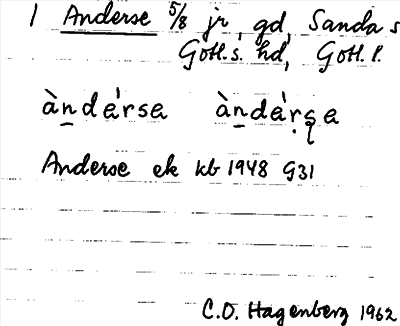 1 Anderse 5/8 jr, gd, Sanda s
Gotl. s. hd, Gotl. l.
àndársa àndárṣa
Anderse ek kb 1948 G31
C.O. Hagenberg 1962